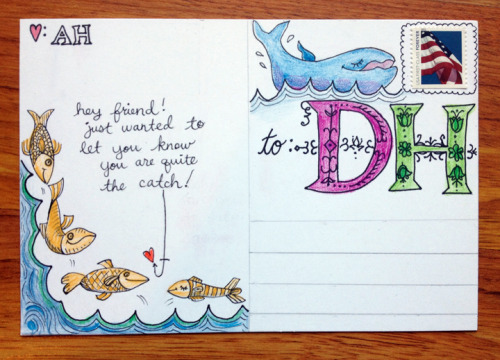 ♥: AH
hey friend!
just wanted to
let you know
you are quite
the catch!
to: DH